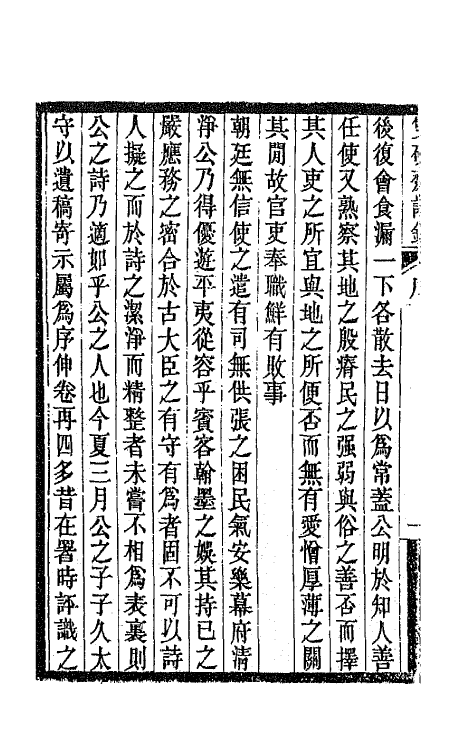 後復會食漏一下各散去日以為常蓋公明於知人善
任使又熟察其地之殷瘠民之强弱與俗之善否而擇
其人吏之所宜與地之所便否而無有愛憎厚薄之關
其閒故官吏奉職鮮有敗事
朝廷無信使之遣有司無供張之困民氣安樂幕府清
淨公乃得優遊平夷從容乎賓客翰墨之娛其持己之
嚴應務之密合於古大臣之有守有為者固不可以詩
人擬之而於詩之潔淨而精整者未嘗不相為表裏則
公之詩乃適如乎公之人也今夏三月公之子子久太
守以遺稿寄示屬為序伸卷再四多昔在署時評識之